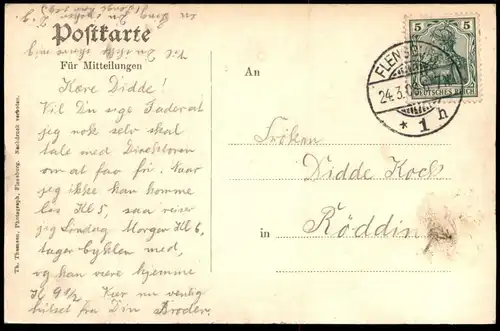 Postkarte
Für Mitteilungen
An
5 5
DEUTSCHES REICH
FLENSBURG
24.3.
* 1 h
Kære Didde!
Vil Du sige Fader at
jeg nok selv skal
tale med Direktören
om at faa fri. Naar
jeg ikke kan komme
los Kl 5, saa rejser
jeg Söndag Morgen Kl 6,
tager Cyklen med,
og kan være hjemme
Kl 9 1/2. Vær nu venlig
hilset fra Din Broder.
Fröken
Didde Koch
in Rödding
Th. Thomsen, Photograph, Flensburg. Nachdruck verboten.